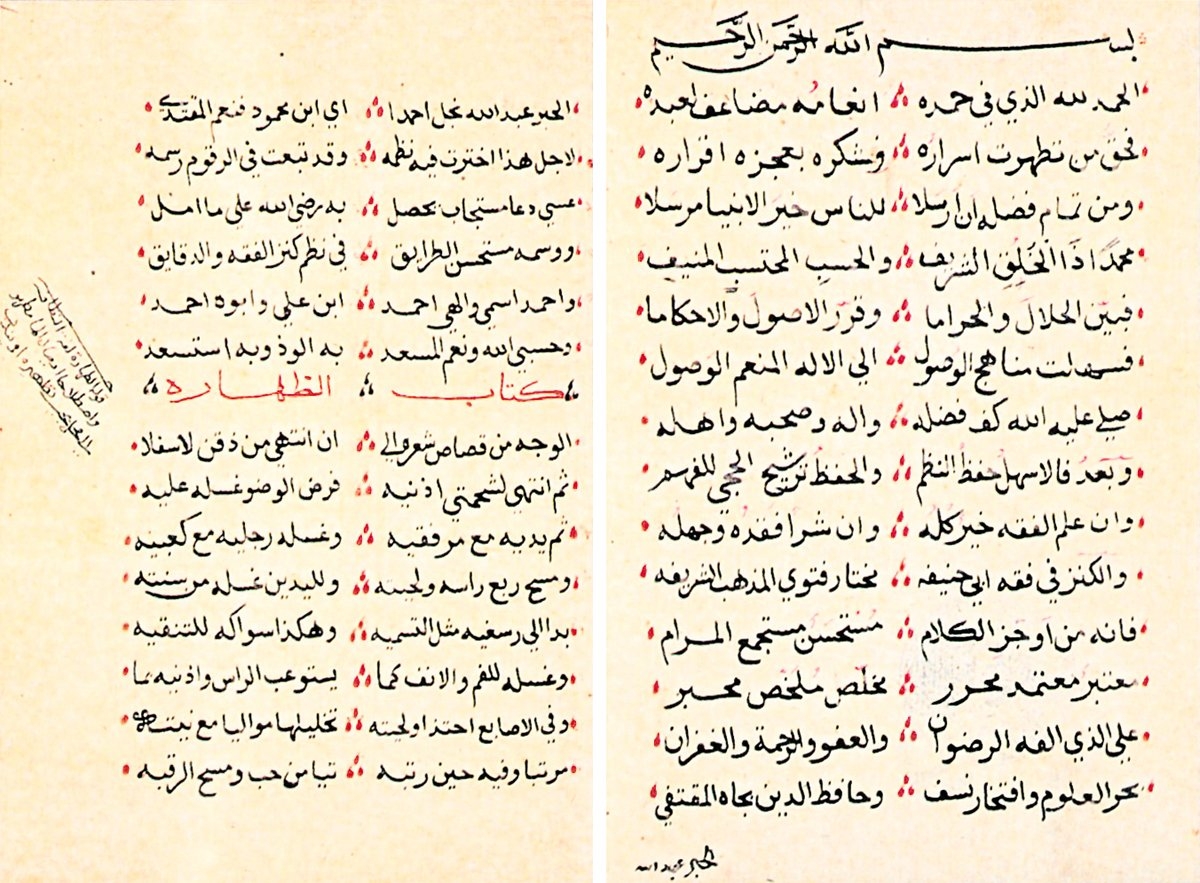 بسم الله الرحمن الرحيم
الحمد لله الذي في حمده انعامه مضاعف لعبده
فحق من تظهرت اسراره وشكره بعجزه اقراره
ومن تمام فضله ان ارسلا للناس خير الانبيا مرسلا
محمدًا ذا الخلق الشريف والحسب المحتسب المنيف
فبين الحلال والحراما وقرر الاصول والاحكاما
فسهلت مناهج الوصول الي الاله المنعم الوصول
صلي عليه الله كف فضله واله وصحبه واهله
وبعد فالاسهل حفظ النظم والحفظ ترشيح الحجي للفهم
وان علم الفقه خير كله وان شرا فقده وجهله
والكنز في فقه ابي حنيفه مختار فتوي المذهب الشريفه
فانه من اوجز الكلام مستحسن مستجمع المرام
معتبر معتمد محرر مخلص ملخص محبر
علي الذي الفه الرضوان والعفو والرحمة والغفران
بحر العلوم وافتخار نسف وحافظ الدين بجاه المقتفي
الحبر عبد الله
الحبر عبد الله نجل احمدا اي ابن محمود فنعم المقتدي
لاجل هذا اخترت فيه نظمه وقد تبعت في الرقوم رسمه
عسي دعا مستجاب يحصل به رضي الله علي ما امل
ووسمه مستحسن الطرايق في نظم كنز الفقه والدقايق
واحمد اسمي والهي احمد ابن علي وابوه احمد
وحسبي الله ونعم المسعد به الوذ وبه استسعد
كتاب الطهاره
الوجه من قصاص شعر الي ان انتهي من ذقن لاسفلا
ثم انتهي لشحمتي اذنيه فرض الوضو غسله عليه
ثم يديه مع مرفقيه وغسله رجليه مع كعبيه
ومسح ربع راسه ولحيته ولليدين غسله من سنته
بدا الي رسغيه مثل التسميه وهكذا سواكه للتنقيه
وغسله للفم والانف كما يستوعب الراس واذنيه بما
وفي الاصابع احتذا ولحيته تخليلها مواليا مع نيته
مرتبا وفيه حين رتبه تيامن حب ومسح الرقبه